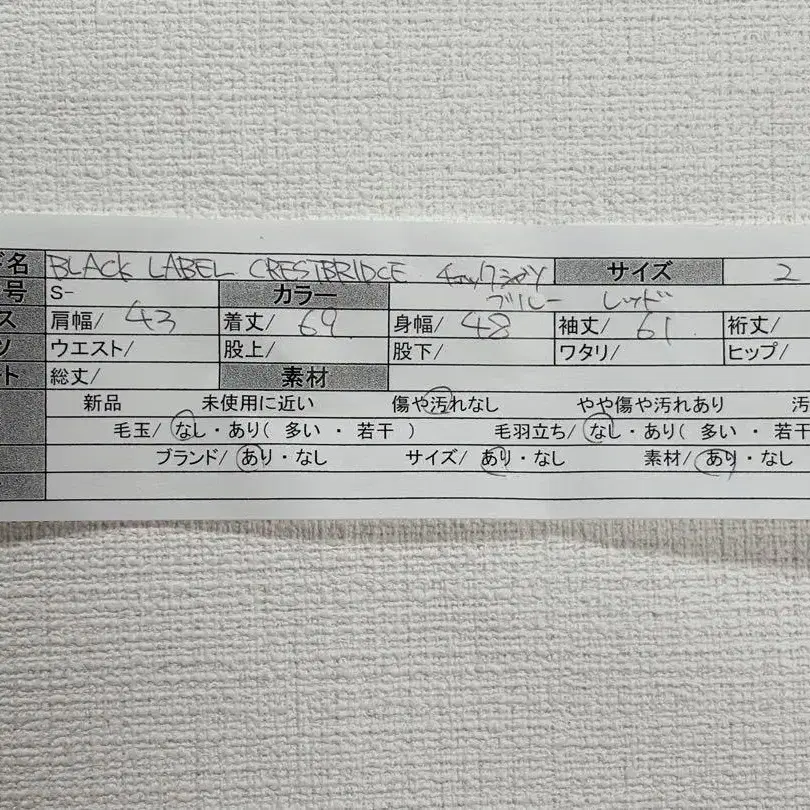 ド名 BLACK LABEL CRESTBRIDGE チェックシャツ サイズ 2
号 S- カラー ブルー レッド
ス 肩幅/ 43 着丈/ 69 身幅/ 48 袖丈/ 61 裄丈/
ツ ウエスト/ 股上/ 股下/ ワタリ/ ヒップ/
ート 総丈/ 素材
新品 未使用に近い 傷や汚れなし やや傷や汚れあり 汚
毛玉/ なし・あり( 多い ・ 若干 ) 毛羽立ち/ なし・あり( 多い ・ 若干
ブランド/ あり・なし サイズ/ あり・なし 素材/ あり・なし